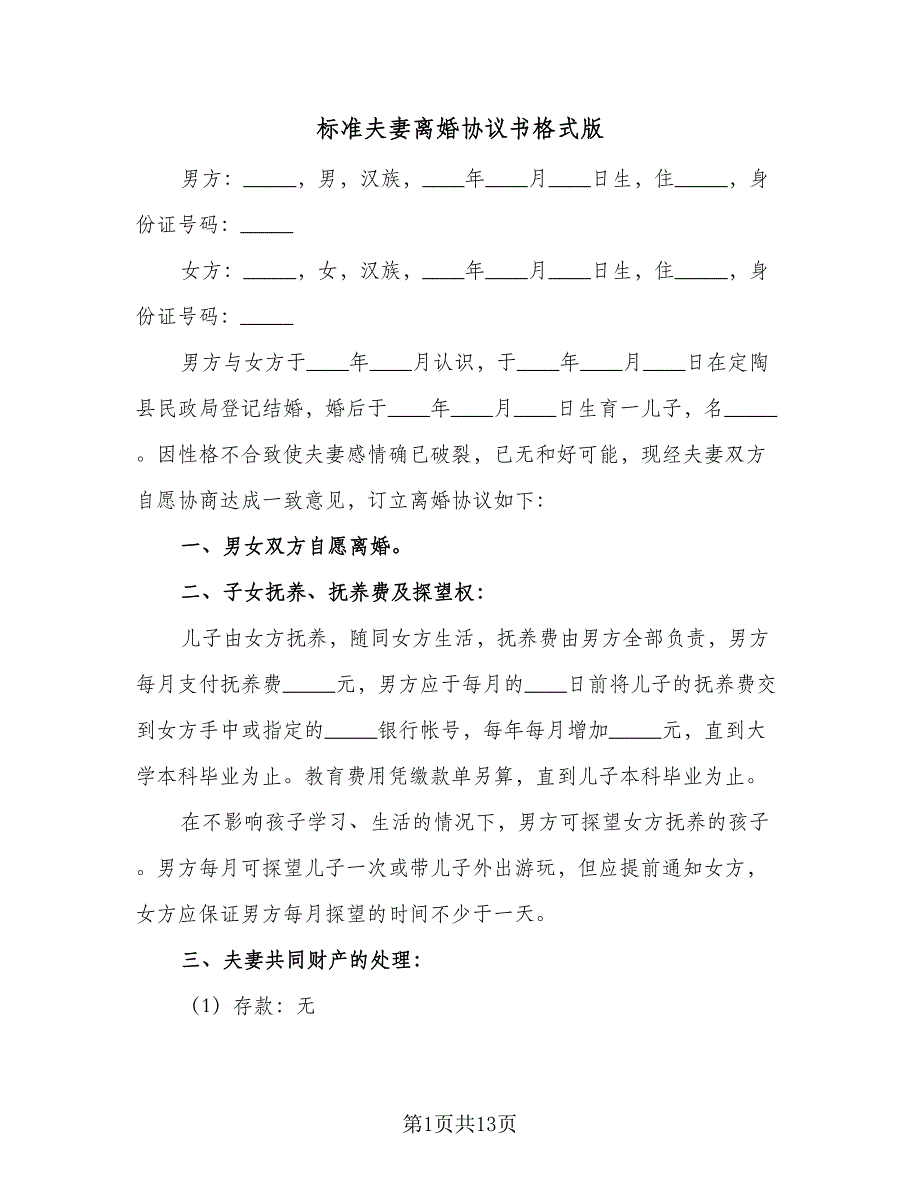 标准夫妻离婚协议书格式版
男方：_____，男，汉族，____年____月____日生，住_____，身
份证号码：_____
女方：_____，女，汉族，____年____月____日生，住_____，身
份证号码：_____
男方与女方于____年____月认识，于____年____月____日在定陶
县民政局登记结婚，婚后于____年____月____日生育一儿子，名_____
。因性格不合致使夫妻感情确已破裂，已无和好可能，现经夫妻双方
自愿协商达成一致意见，订立离婚协议如下：
一、男女双方自愿离婚。
二、子女抚养、抚养费及探望权：
儿子由女方抚养，随同女方生活，抚养费由男方全部负责，男方
每月支付抚养费_____元，男方应于每月的____日前将儿子的抚养费交
到女方手中或指定的_____银行帐号，每年每月增加_____元，直到大
学本科毕业为止。教育费用凭缴款单另算，直到儿子本科毕业为止。
在不影响孩子学习、生活的情况下，男方可探望女方抚养的孩子
。男方每月可探望儿子一次或带儿子外出游玩，但应提前通知女方，
女方应保证男方每月探望的时间不少于一天。
三、夫妻共同财产的处理：
（1）存款：无
第1页共13页